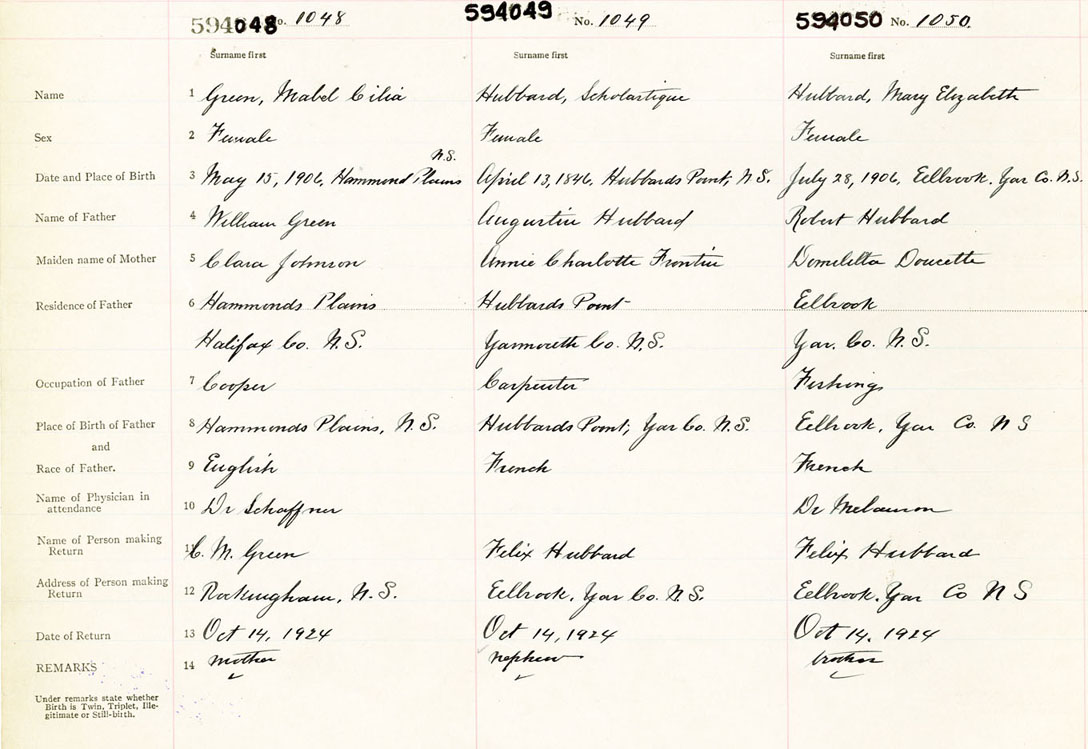 594048 No. 1048 594049 No. 1049 594050 No. 1050.
Surname first Surname first Surname first
Name 1 Green, Mabel Cilia Hubbard, Scholastique Hubbard, Mary Elizabeth
Sex 2 Female Female Female
N.S.
Date and Place of Birth 3 May 15, 1906, Hammond Plains April 13, 1846, Hubbards Point, N.S. July 28, 1906, Eelbrook. Yar Co. N.S.
Name of Father 4 William Green Augustin Hubbard Robert Hubbard
Maiden name of Mother 5 Clara Johnson Annie Charlotte Frontin Domiletta Doucette
Residence of Father 6 Hammonds Plains Hubbards Point Eelbrook
Halifax Co. N.S. Yarmouth Co. N.S. Yar. Co. N.S.
Occupation of Father 7 Cooper Carpenter Fishing
Place of Birth of Father 8 Hammonds Plains, N.S. Hubbards Point, Yar Co. N.S. Eelbrook, Yar Co. N S
and
Race of Father. 9 English French French
Name of Physician in
attendance 10 Dr Schaffner Dr
Name of Person making
Return 11 C. M. Green Felix Hubbard Felix Hubbard
Address of Person making
Return 12 Rockingham, N.S. Eelbrook, Yar Co. N.S. Eelbrook. Yar Co N S
Date of Return 13 Oct 14, 1924 Oct 14, 1924 Oct 14. 1924
REMARKS 14 mother nephew brother
Under remarks state whether
Birth is Twin, Triplet, Ille-
gitimate or Still-birth.